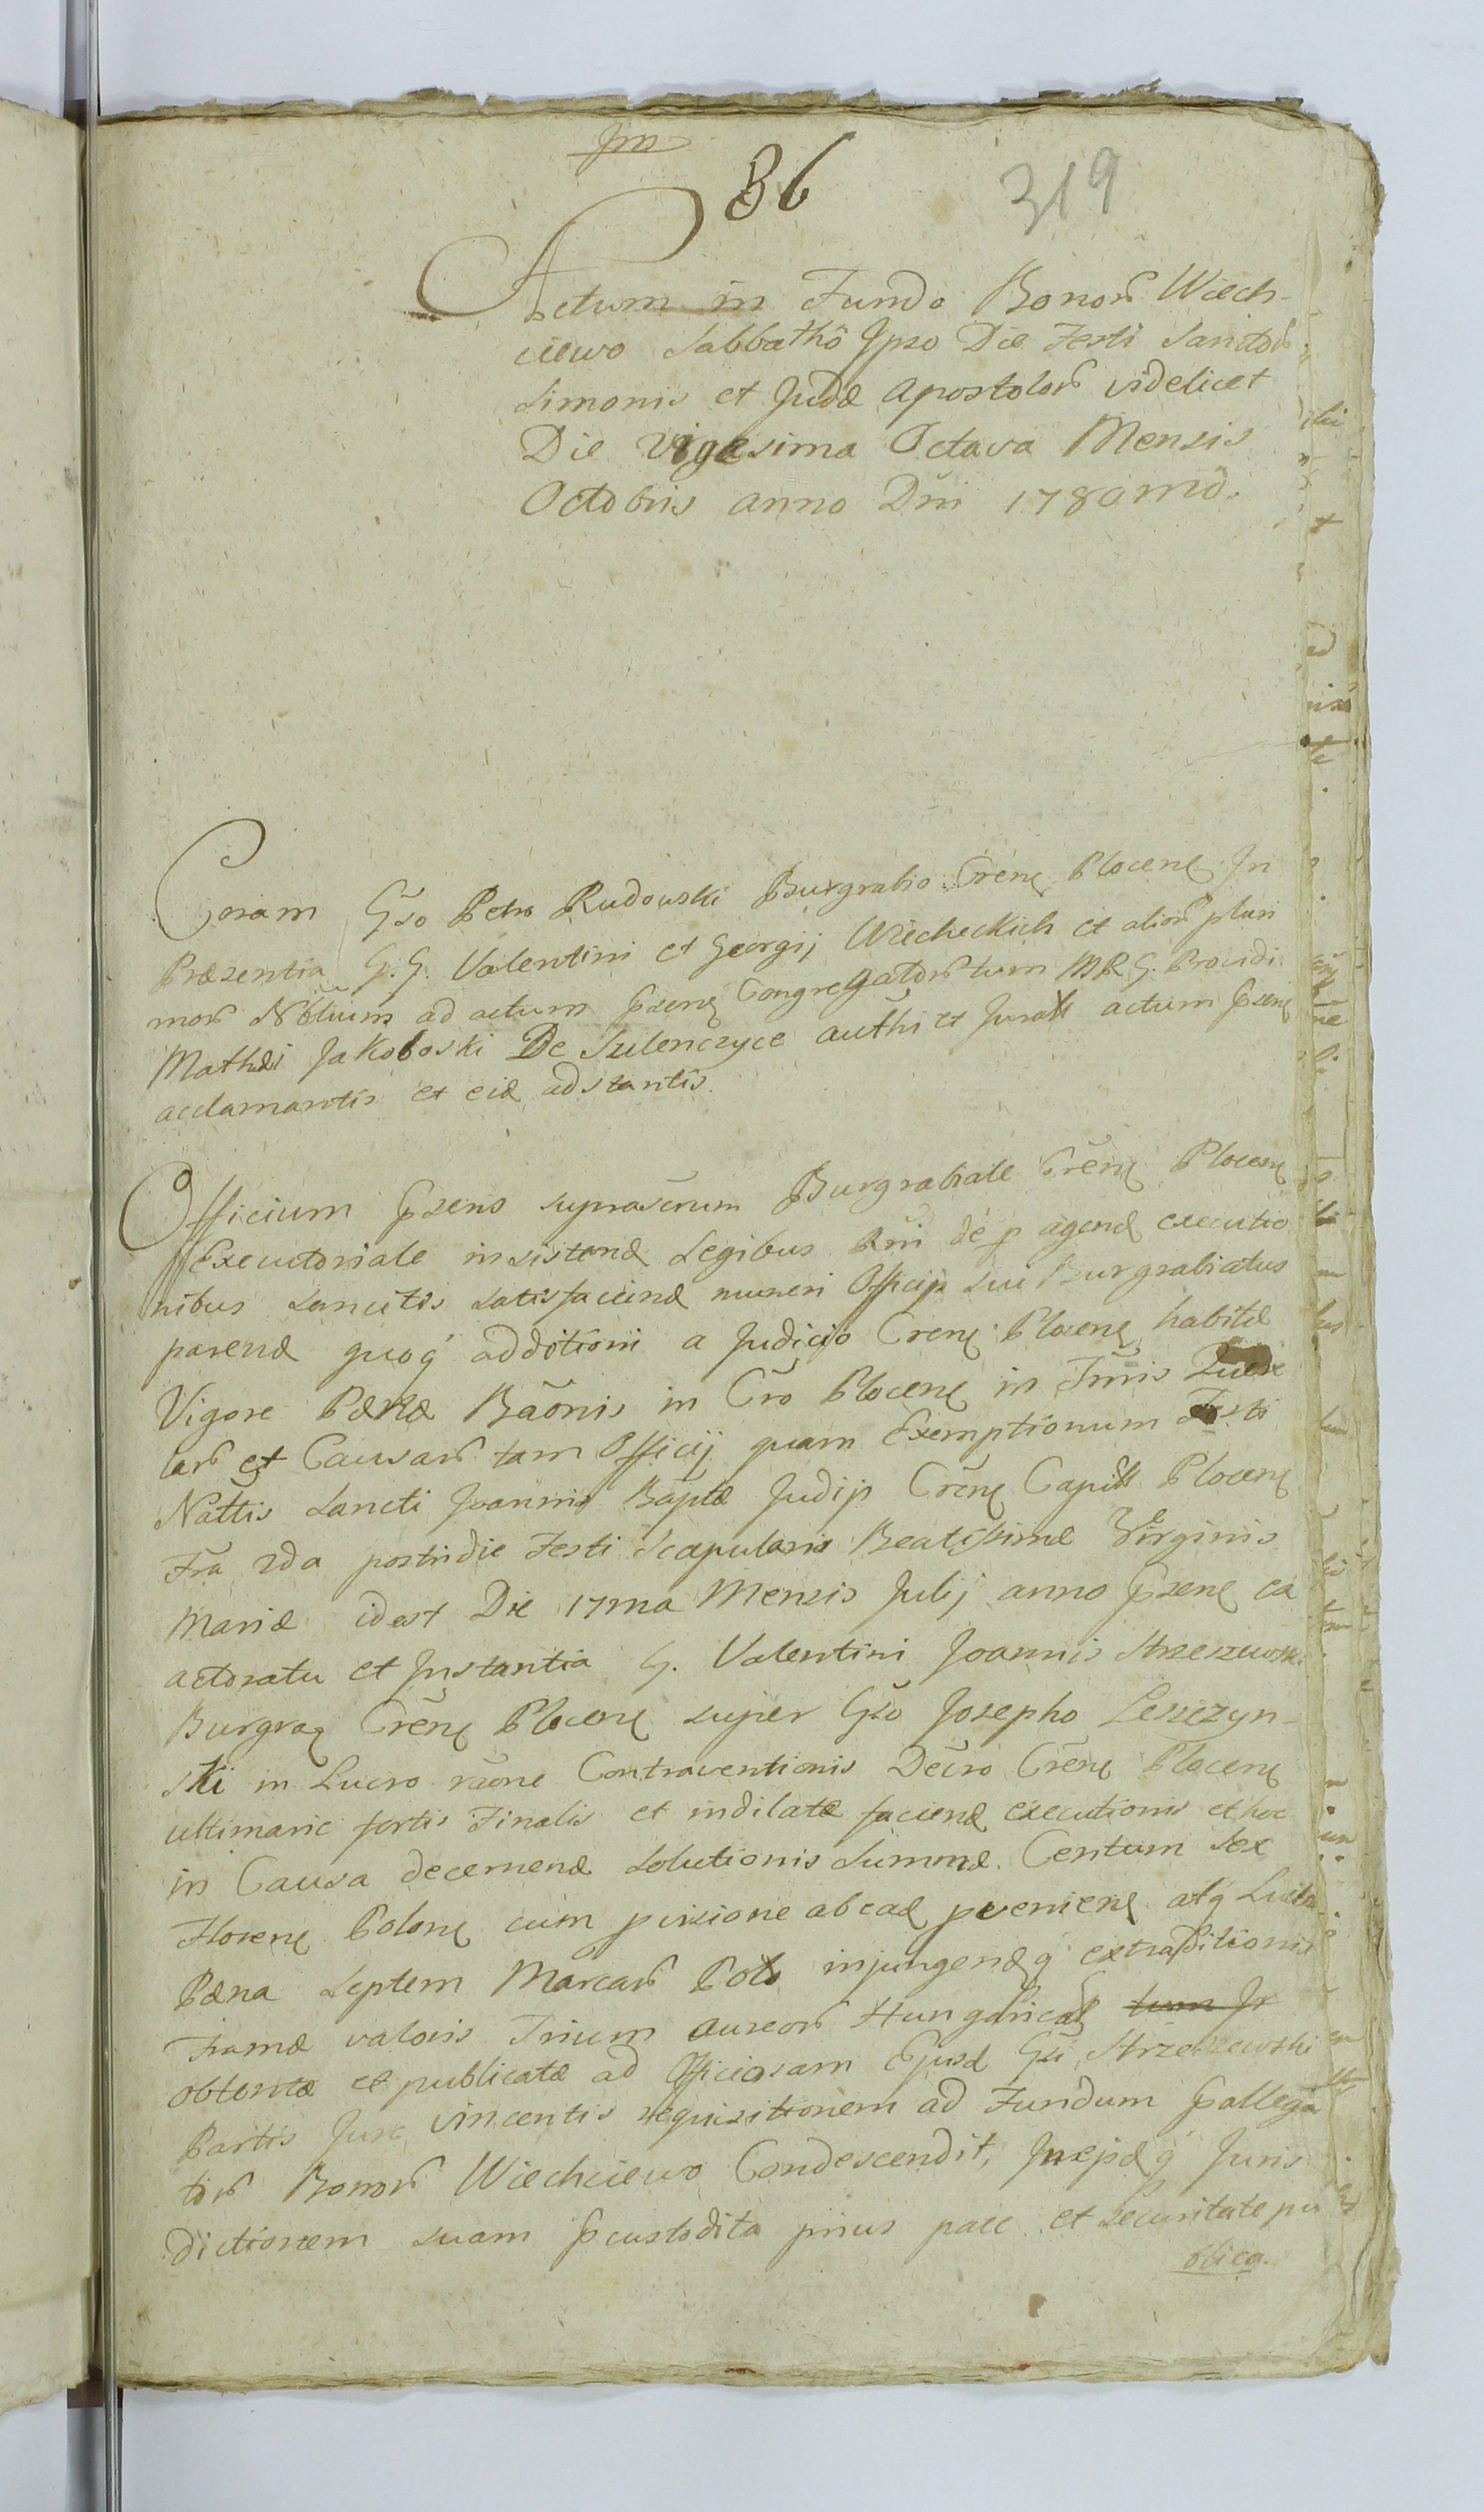 86
319
Actum in Fundo Bonor Wiech-
ciewo Sabbathô Ipso Die Festi Sanctor
Simonis et Judæ Apostolor videlicet
Die Vigesima Octava Mensis
Octobris anno Dni 1780mô.
Coram Gso Petro Rudowski Burgrabio Crenę Plocenę In
Præsentia G.G. Valentini et Georgij Wiecheckich et alior pluri
mor Nobilium ad actum Psenę Congregator tum MR G. Providi
Mathæi Jakoboski De Sulenczyce authi et Jurati actum Psenę
acclamantis et eid adstantis.
Officium Psens suprascrum Burgrabiale Crenę Plocenę
Executoriale insistend Legibus Rni de p agend executio
nibus Sancitis satisfaciend muneri Officij sui Burgrabiatus
parend quoq additioni a Judicio Crenę Plocenę habitæ
Vigore Pænæ Baonis in Cro Plocenę in Tmis Quere
lar et Causar tam Officij quam Exemptionum Festi
Nattis Sancti Joannis Baptæ Judijs Crenę Capitt Plocenę
Fra 2da postridie Festi Scapularis Beatissimæ Virginis
Mariæ idest Die 17ma Mensis Julij anno Psenę ea
actoratu et Instantia G. Valentini Joannis Strzeszewski
Burgrag Crenę Plocenę super Gso Josepho Leszczyn-
ski in Lucro raone Contraventionis Decro Crenę Plocenę
ultimarie fortis Finalis et indilatæ faciend executionis et hoc
in Causa decernend Solutionis Summæ Centum Sex
Florenę Polonę cum pvisione ab ead pvenienę atq Luitio
Pæna Septem Marcar Pol injungendq extraditionis
Framæ valoris Trium aureor Hungarical tum Jr
obtentæ et publicatæ ad Officiosam Ejusd Gsi Strzeszewski
Partis Jure vincentis requisitionem ad Fundum Pallega
tor Bonor Wiechciewo Condescendit, Ineisdq Juris
dictionem suam Pcustodita prius pace et securitate pu
blica.